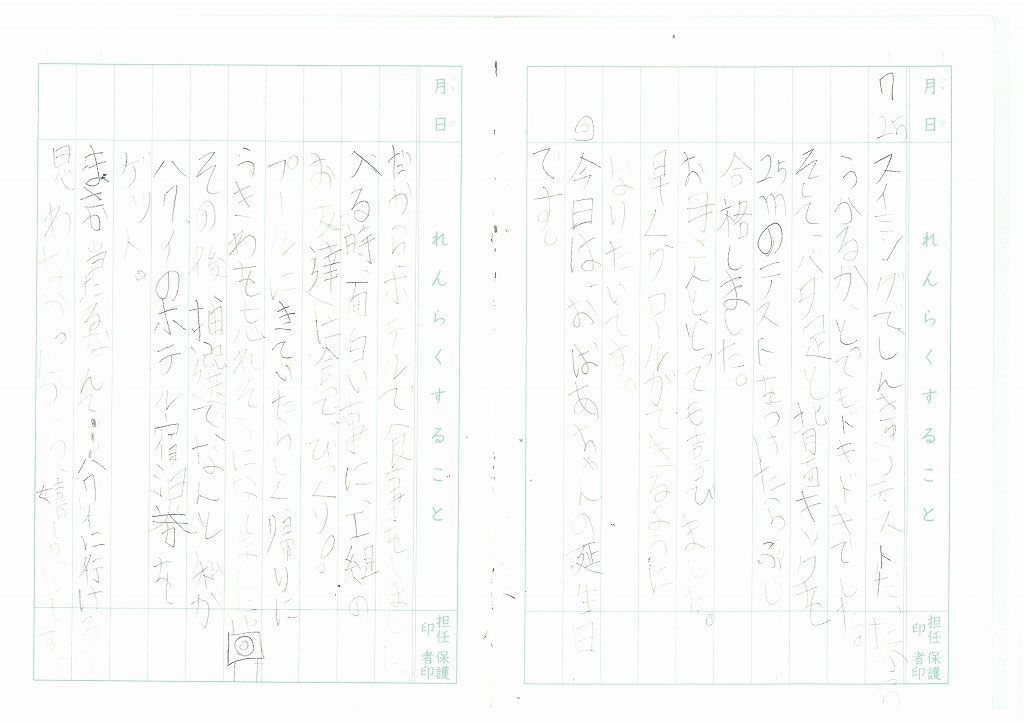 月日
れんらくすること
担任印
保護者印
7 25
スイミングでしんきゅうテストだ、
うかるか、とってもドキドキでした。
そして、バタ足と背面キックも
25mのテストをうけたらぶじ
合格しました。
お母さんもとっても喜びました。
早くクロールができるように
なりたいです。
◎今日は、おばあちゃんの誕生日
です。
月日
れんらくすること
担任印
保護者印
だからホテルで食事をしまし
入る時、面白い事に、工組の
お友達に会ってびっくり。
プールにきていたらしく帰りに
うきわを忘れそうになって
その後、抽選でなんと私が
ハワイのホテル宿泊券を
ゲット。
まさか当たるなんて…ハワイに行ける
思わなかった 嬉しいです。